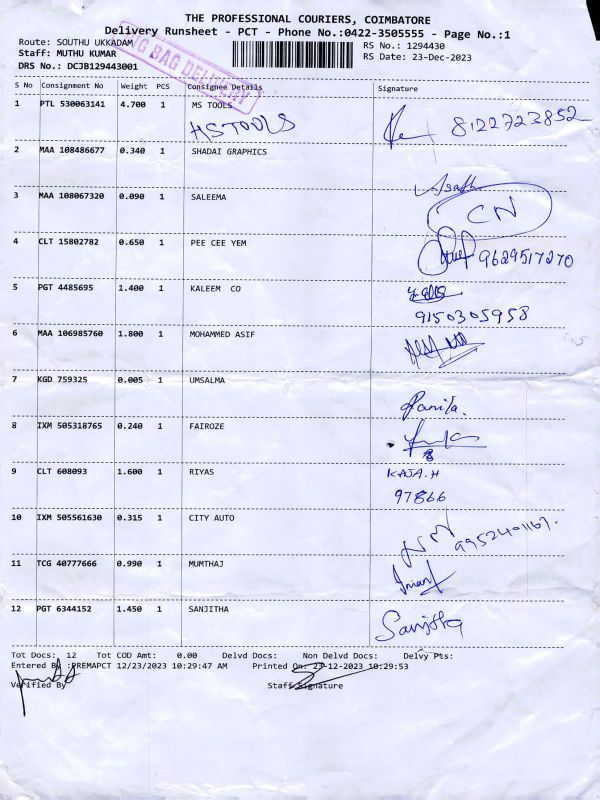 THE PROFESSIONAL COURIERS, COIMBATORE
Delivery Runsheet - PCT - Phone No.:0422-3505555 - Page No.:1
Route: SOUTHU UKKADAM
RS No.: 1294430
Staff: MUTHU KUMAR
RS Date: 23-Dec-2023
DRS No.: DCJB129443001
BAG DELIVERY
S No Consignment No Weight PCS Consignee Details Signature
1 PTL 530063141 4.700 1 MS TOOLS
MS TOOLS 8122723852
2 MAA 108486677 0.340 1 SHADAI GRAPHICS
3 MAA 108067320 0.090 1 SALEEMA
CN
4 CLT 15802782 0.650 1 PEE CEE YEM
9629517270
5 PGT 4485695 1.400 1 KALEEM CO
9150305958
6 MAA 106985760 1.800 1 MOHAMMED ASIF
7 KGD 759325 0.005 1 UMSALMA
8 IXM 505318765 0.240 1 FAIROZE
9 CLT 608093 1.600 1 RIYAS
KAJA.H
97866
10 IXM 505561630 0.315 1 CITY AUTO
11 TCG 40777666 0.990 1 MUMTHAJ
12 PGT 6344152 1.450 1 SANJITHA
Sanjitha
Tot Docs: 12 Tot COD Amt: 0.00 Delvd Docs: Non Delvd Docs: Delvy Pts:
Entered By :PREMAPCT 12/23/2023 10:29:47 AM Printed On: 23-12-2023 10:29:53
Verified By Staff Signature